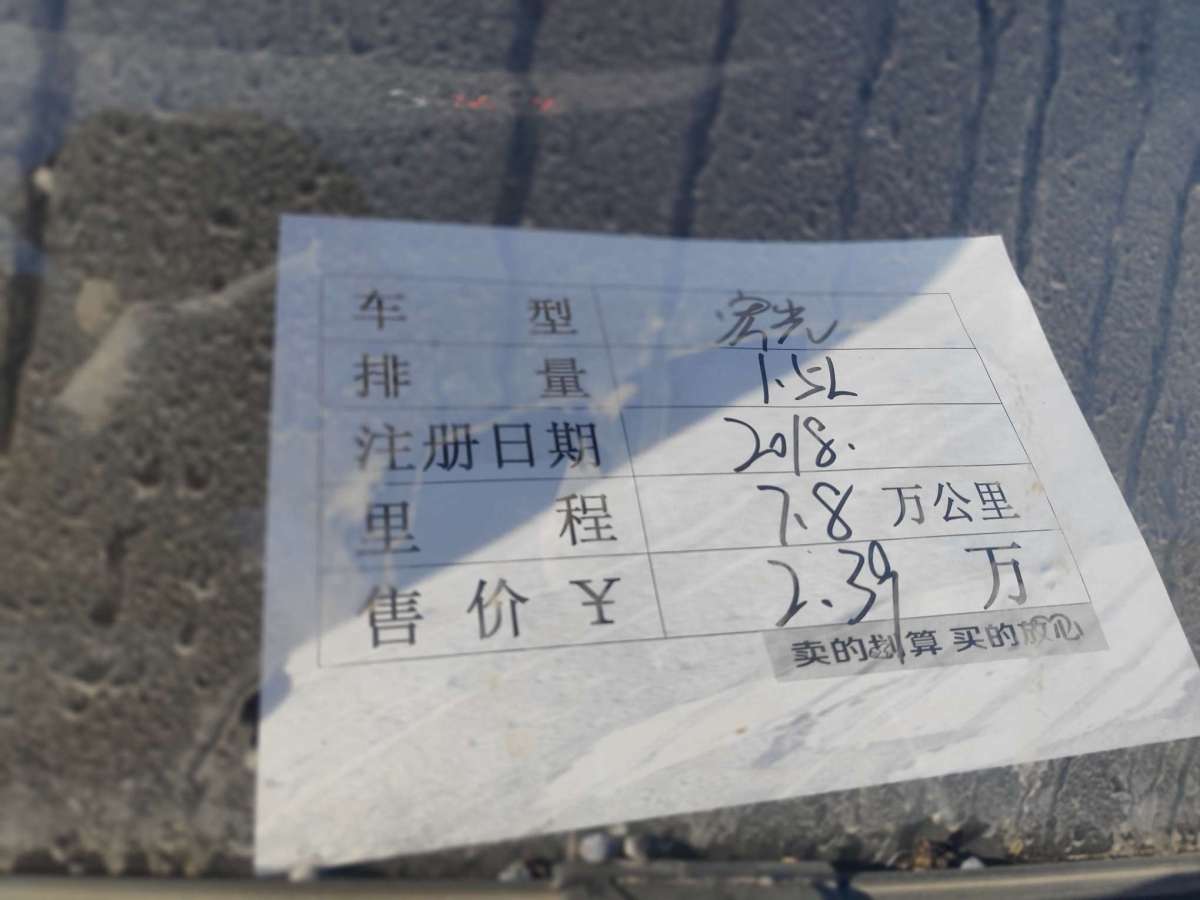 车型 宏光
排量 1.5L
注册日期 2018.
里程 7.8 万公里
售价¥ 2.39 万
卖的划算 买的放心